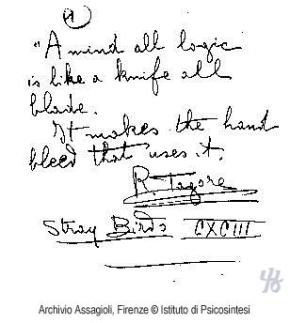 "A mind all logic
is like a knife all
blade.
It makes the hand
bleed that uses it.
R. Tagore
Stray Birds CXCIII
Archivio Assagioli, Firenze © Istituto di Psicosintesi